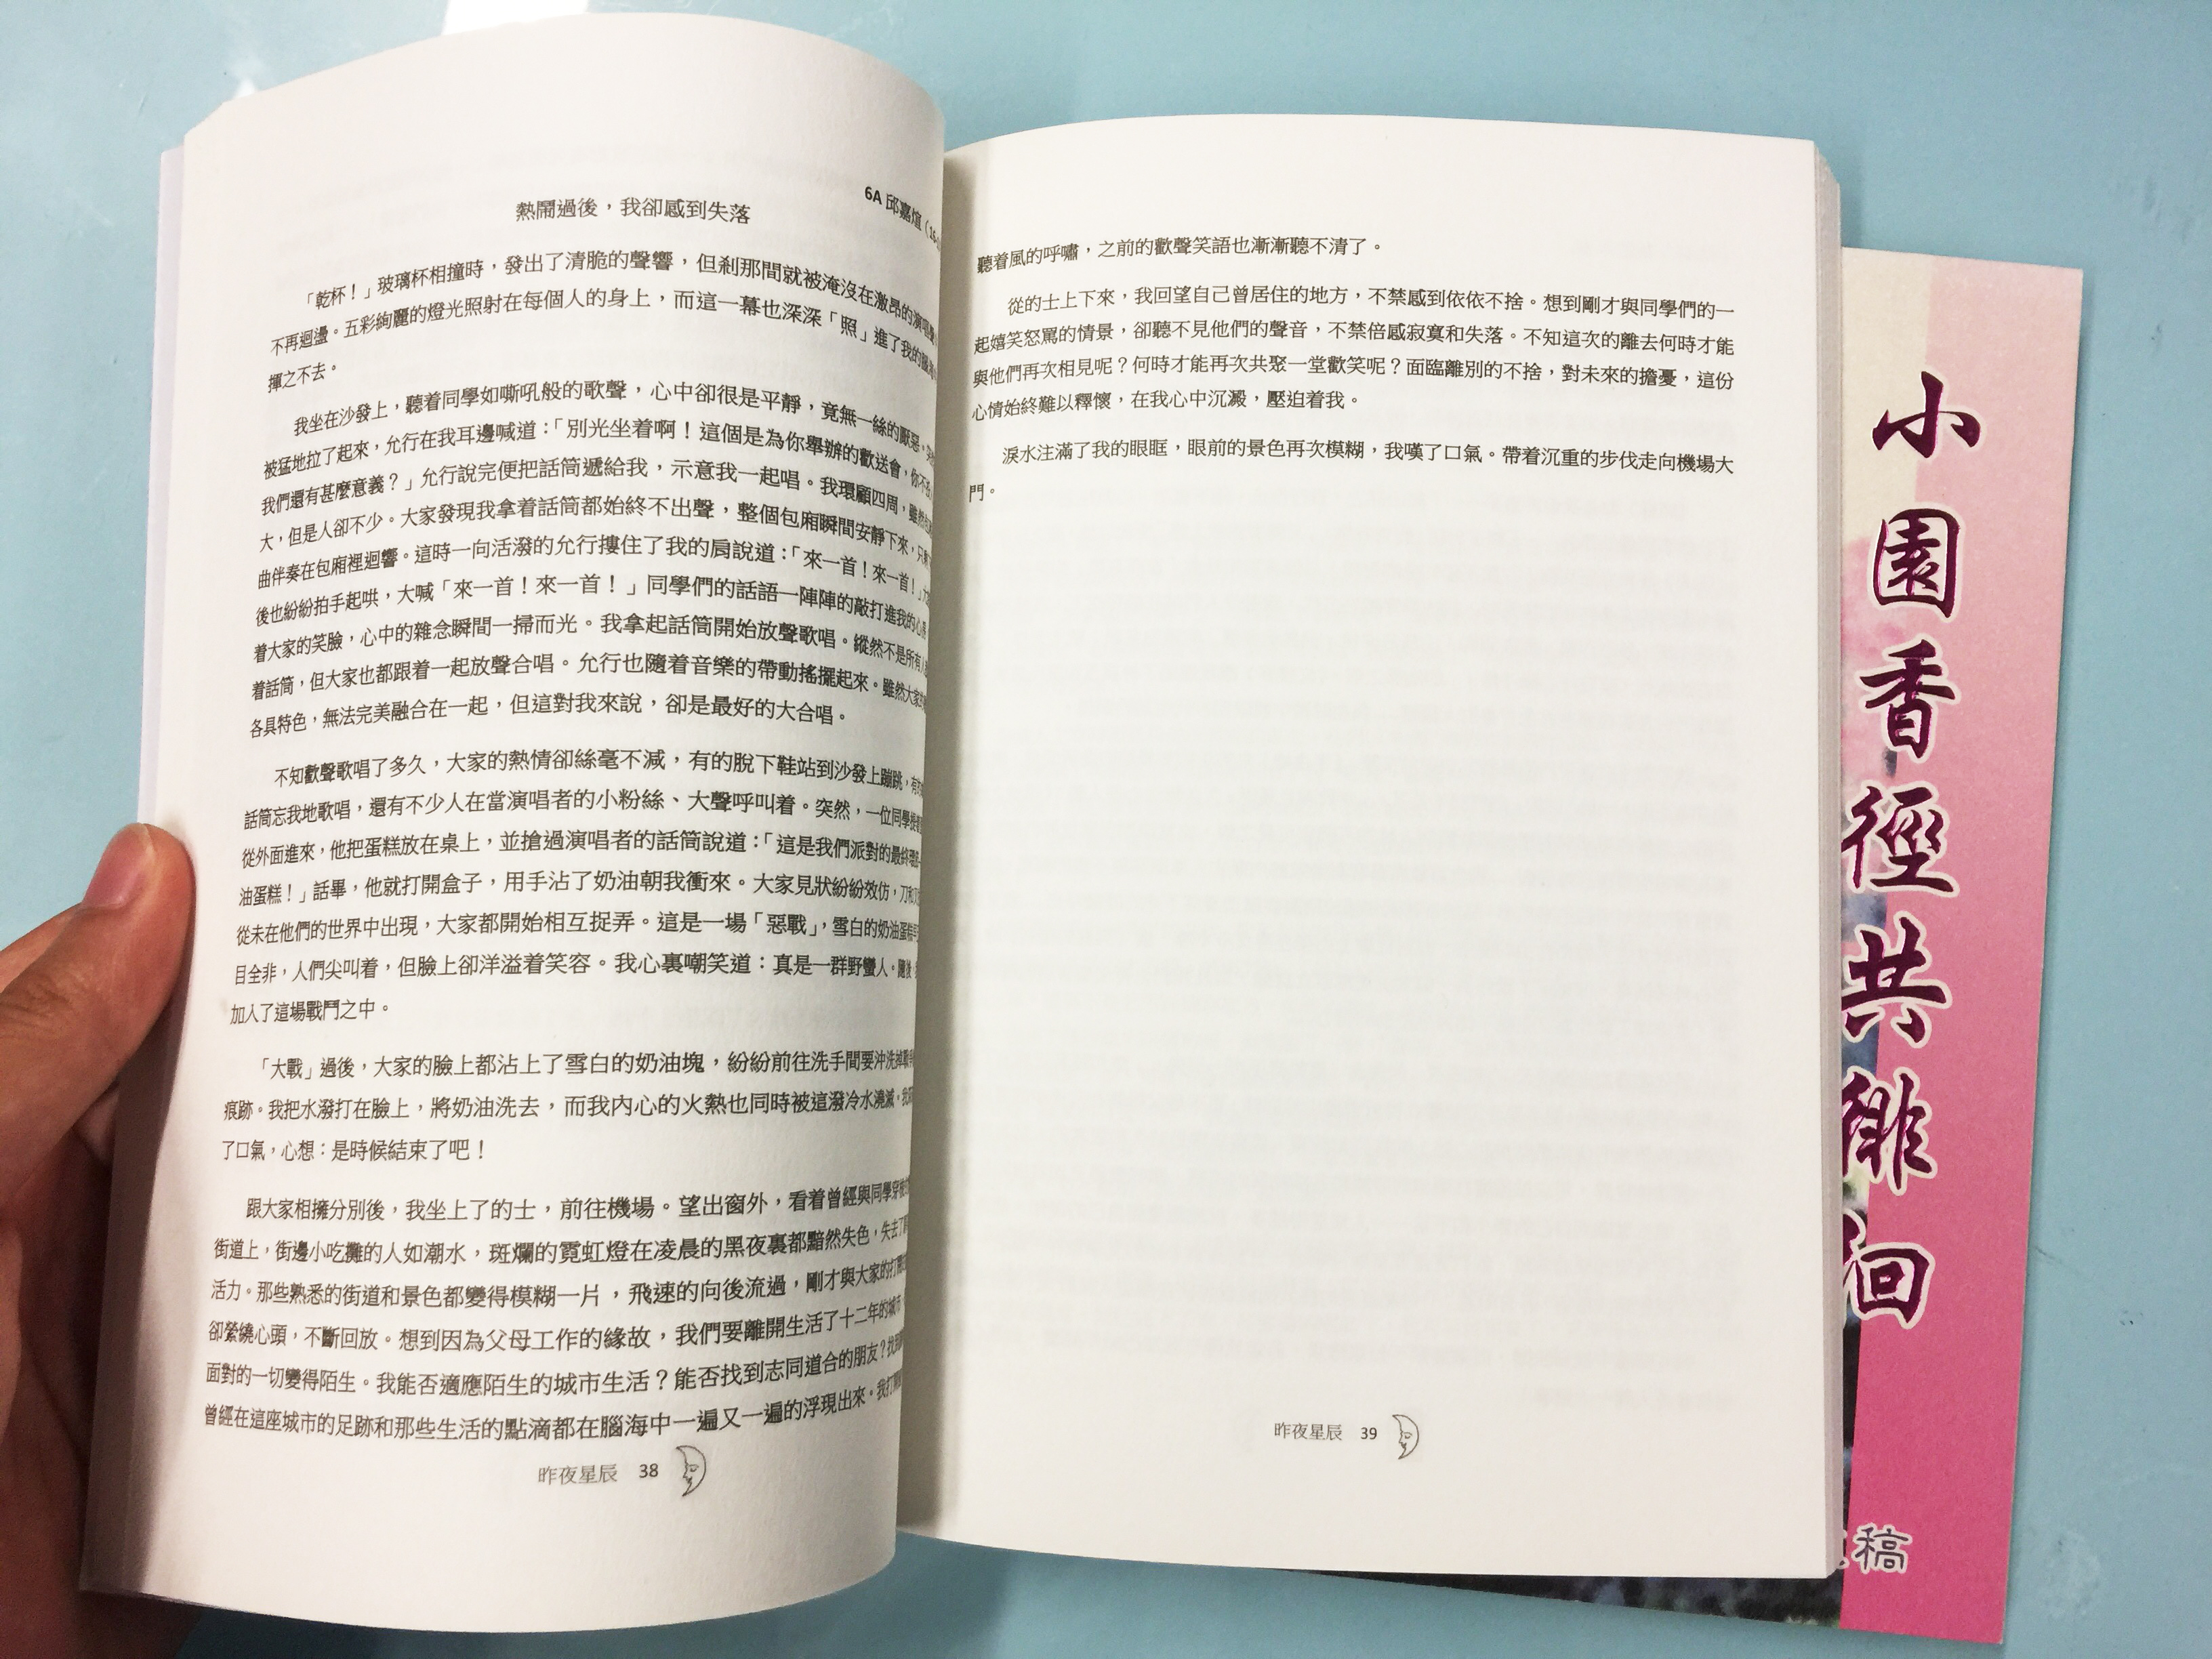 6A 邱嘉煊
熱鬧過後，我卻感到失落
「乾杯！」玻璃杯相撞時，發出了清脆的聲響，但剎那間就被淹沒在激昂的演唱聲
不再迴盪。五彩絢麗的燈光照射在每個人的身上，而這一幕也深深「照」進了我的腦海
揮之不去。
我坐在沙發上，聽着同學如嘶吼般的歌聲，心中卻很是平靜，竟無一絲的厭惡。
被猛地拉了起來，允行在我耳邊喊道：「別光坐着啊！這個是為你舉辦的歡送會，你不
我們還有甚麼意義？」允行說完便把話筒遞給我，示意我一起唱。我環顧四周，雖然
大，但是人卻不少。大家發現我拿着話筒都始終不出聲，整個包廂瞬間安靜下來，只
曲伴奏在包廂裡迴響。這時一向活潑的允行摟住了我的肩說道：「來一首！來一首！」
後也紛紛拍手起哄，大喊「來一首！來一首！」同學們的話語一陣陣的敲打進我的心
着大家的笑臉，心中的雜念瞬間一掃而光。我拿起話筒開始放聲歌唱。縱然不是所有
着話筒，但大家也都跟着一起放聲合唱。允行也隨着音樂的帶動搖擺起來。雖然大家
各具特色，無法完美融合在一起，但這對我來說，卻是最好的大合唱。
不知歡聲歌唱了多久，大家的熱情卻絲毫不減，有的脫下鞋站到沙發上蹦跳，有
話筒忘我地歌唱，還有不少人在當演唱者的小粉絲、大聲呼叫着。突然，一位同學
從外面進來，他把蛋糕放在桌上，並搶過演唱者的話筒說道：「這是我們派對的最終
油蛋糕！」話畢，他就打開盒子，用手沾了奶油朝我衝來。大家見狀紛紛效仿，刀和
從未在他們的世界中出現，大家都開始相互捉弄。這是一場「惡戰」，雪白的奶油蛋糕
目全非，人們尖叫着，但臉上卻洋溢着笑容。我心裏嘲笑道：真是一群野蠻人。隨後，
加入了這場戰鬥之中。
「大戰」過後，大家的臉上都沾上了雪白的奶油塊，紛紛前往洗手間要沖洗掉
痕跡。我把水潑打在臉上，將奶油洗去，而我內心的火熱也同時被這潑冷水澆滅。我
了口氣，心想：是時候結束了吧！
跟大家相擁分別後，我坐上了的士，前往機場。望出窗外，看着曾經與同學穿
街道上，街邊小吃攤的人如潮水，斑斕的霓虹燈在凌晨的黑夜裏都黯然失色，失去了
活力。那些熟悉的街道和景色都變得模糊一片，飛速的向後流過，剛才與大家的打
卻縈繞心頭，不斷回放。想到因為父母工作的緣故，我們要離開生活了十二年的城市
面對的一切變得陌生。我能否適應陌生的城市生活？能否找到志同道合的朋友？
曾經在這座城市的足跡和那些生活的點滴都在腦海中一遍又一遍的浮現出來。我打
昨夜星辰 38
聽着風的呼嘯，之前的歡聲笑語也漸漸聽不清了。
從的士上下來，我回望自己曾居住的地方，不禁感到依依不捨。想到剛才與同學們的一
起嬉笑怒罵的情景，卻聽不見他們的聲音，不禁倍感寂寞和失落。不知這次的離去何時才能
與他們再次相見呢？何時才能再次共聚一堂歡笑呢？面臨離別的不捨，對未來的擔憂，這份
心情始終難以釋懷，在我心中沉澱，壓迫着我。
淚水注滿了我的眼眶，眼前的景色再次模糊，我嘆了口氣。帶着沉重的步伐走向機場大
門。
昨夜星辰 39
小園香徑共徘徊
稿